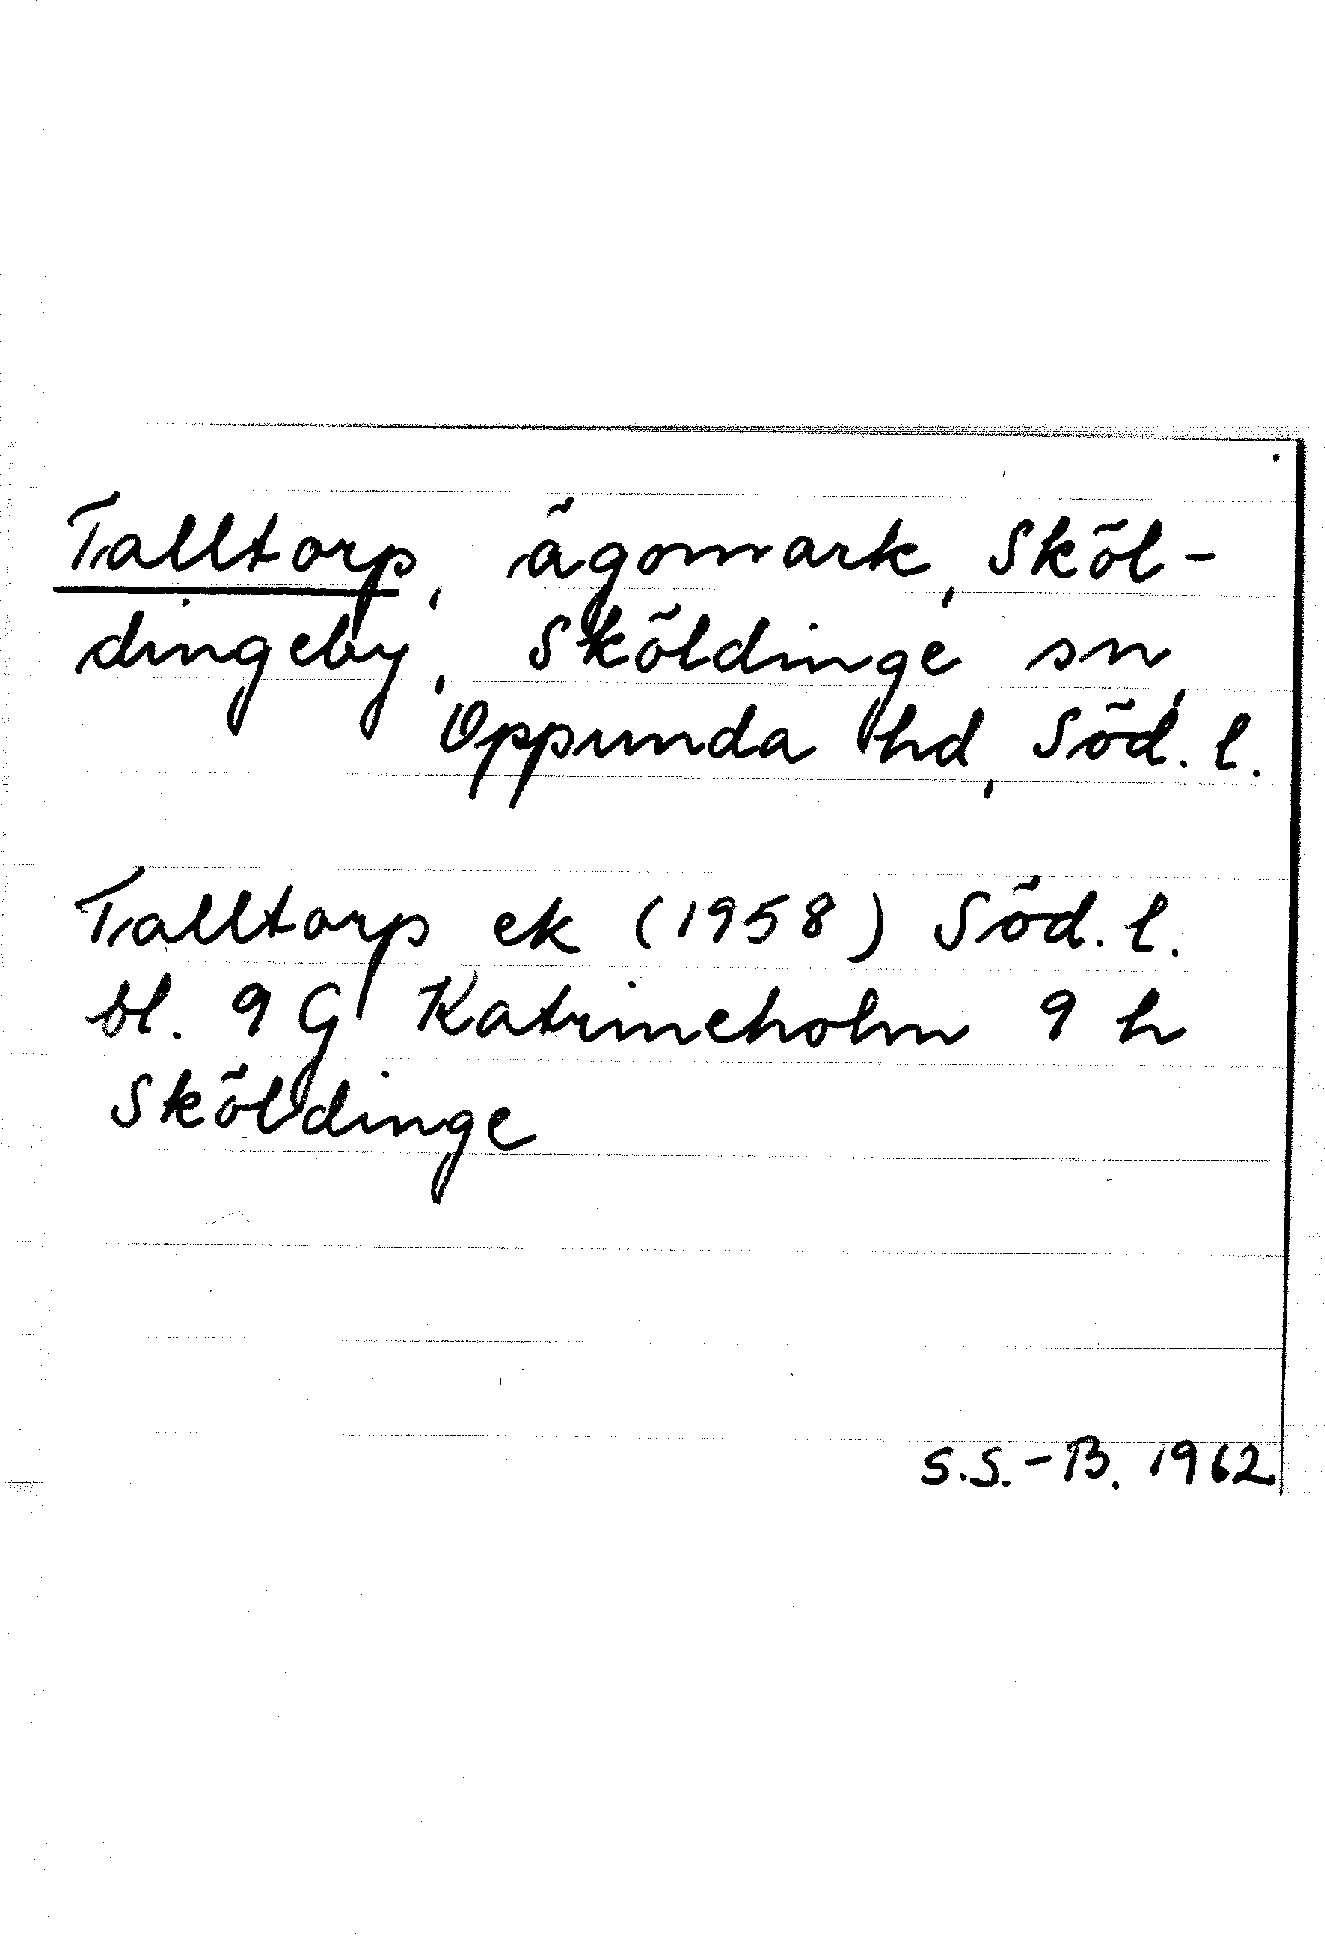 Talltorp, ägomark, Sköl-
dingeby, Sköldinge sn,
Oppunda hd, Söd. l.
Talltorp ek (1958) Söd. l.
bl. 9 G Katrineholm 9 h
Sköldinge
S.S.-B. 1962